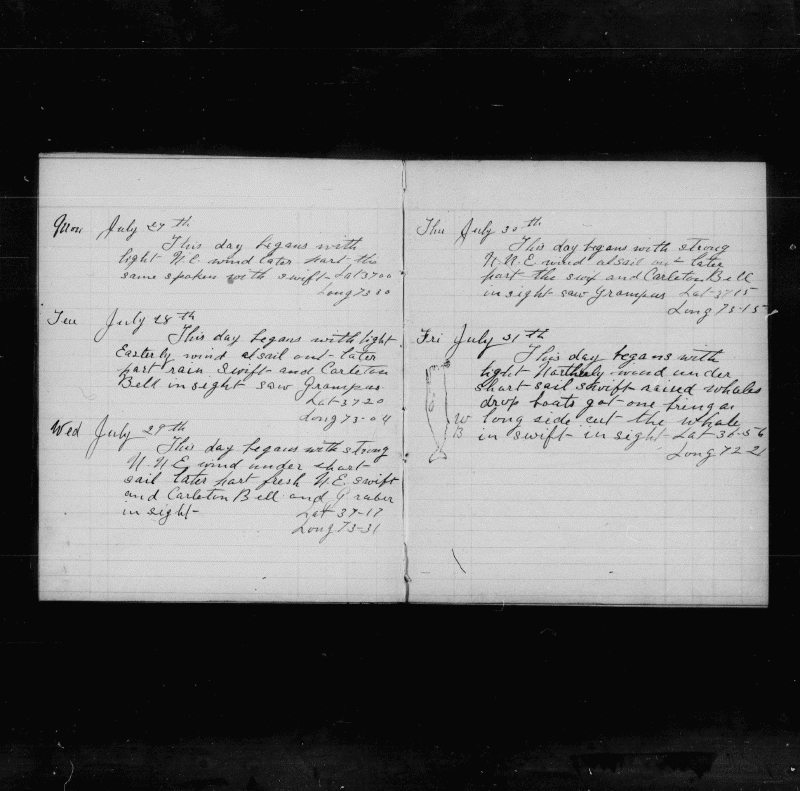 Mon July 27th
This day begans with
light N.E. wind later part the
same spoken with swift Lat 37 00
Long 73 00
Teu July 28th
This day begans with light
Easterly wind alsail out later
part rain Swift and Carleton
Bell in sight saw Grampas
Lat 37 20
Long 73-04
Wed July 29th
This day begans with strong
N.N.E. wind under short
sail later part fresh N.E. swift
and Carleton Bell and Graber
in sight Lat 37-17
Long 73-31
Thu July 30th
This day begans with strong
N.N.E wind alsail out later
part the and Carleton Bell
in sight saw Grampus Lat-37-15
Long 73-15
Fri July 31th
This day begans with
light Northerly wind under
short sail swift raised whales
drop boats got one bring a
W long side cut the whale
B in swift in sight Lat 36-56
Long 72-21